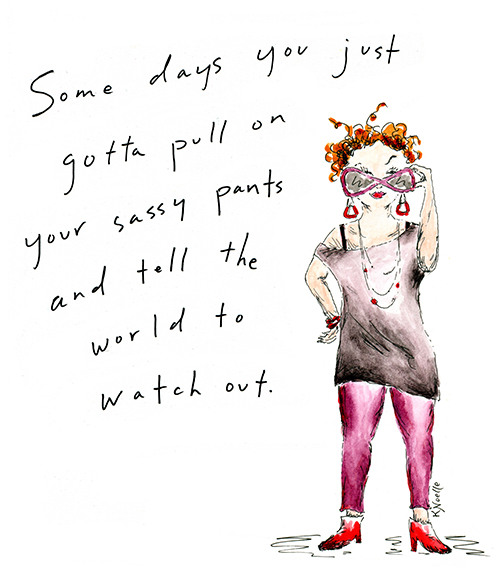 Some days you just
gotta pull on
your sassy pants
and tell the
world to
watch out.
K.Noelle